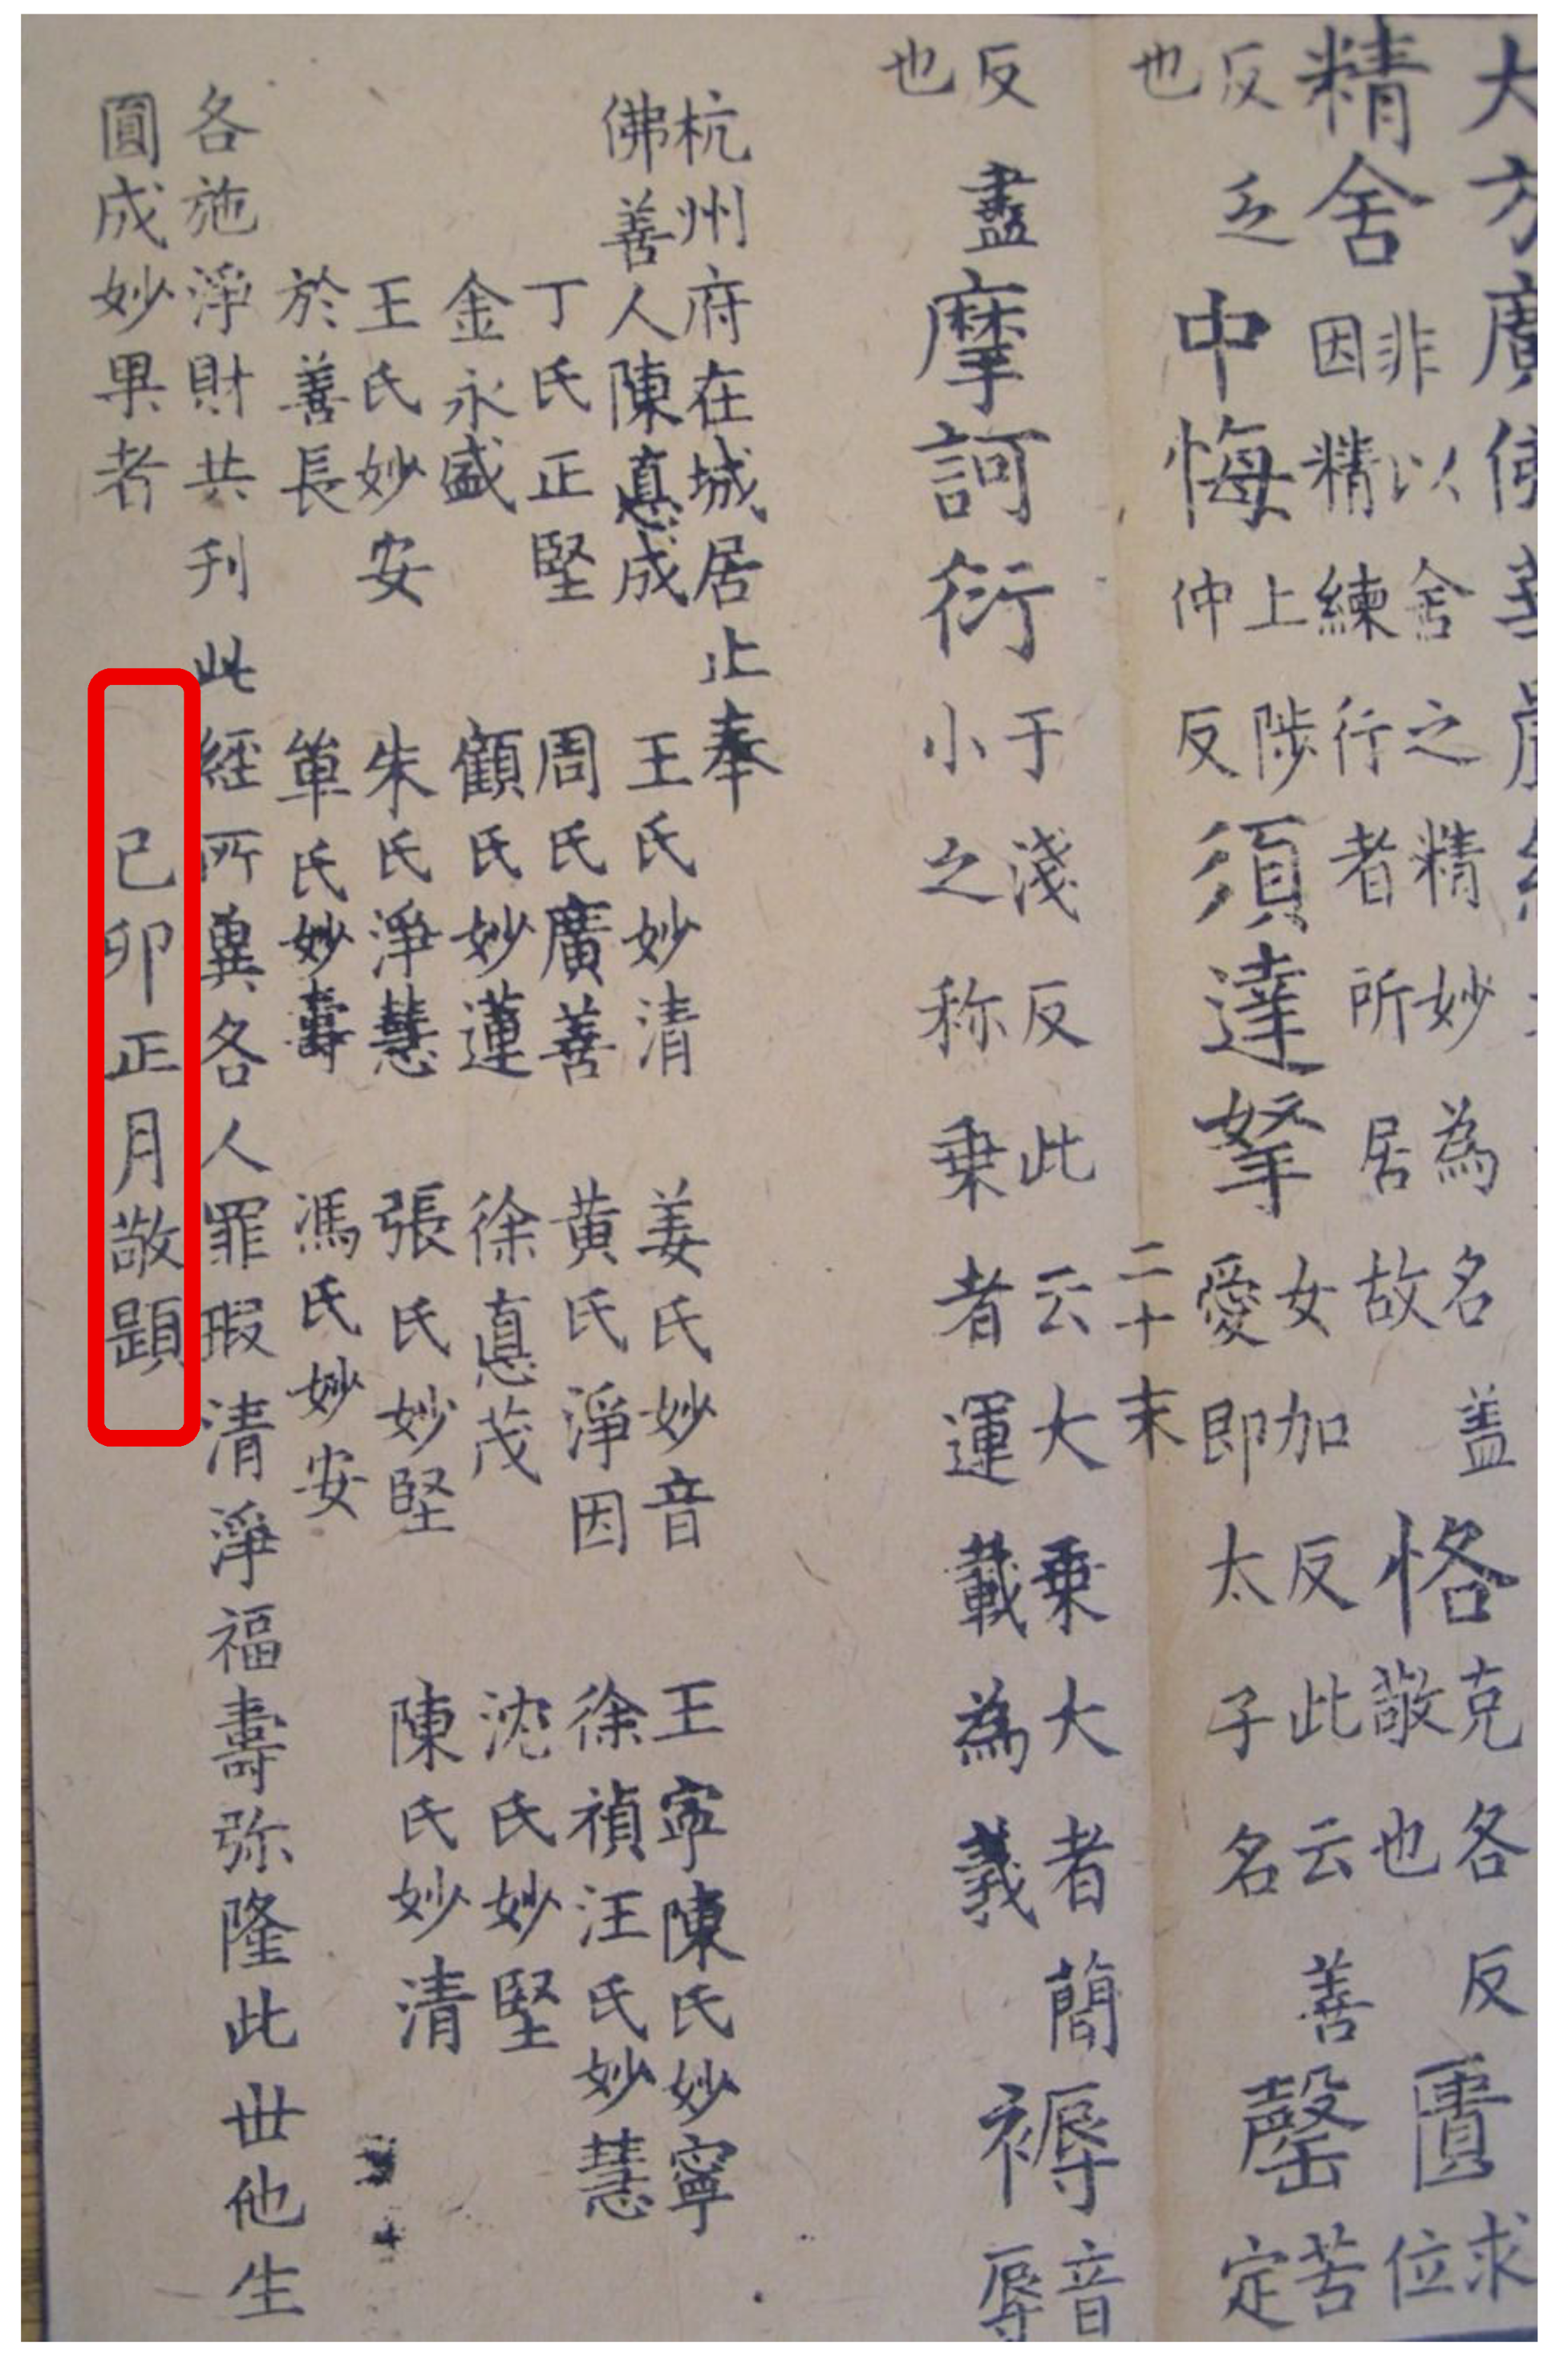 大方廣佛華嚴經
精舍
非以舍之精妙為名盖
因精練行者所居故
恪
克各反
敬也
匱
求
位
反乏
也
中悔
上陟
仲反
須達拏
女加反此云善
愛即太子名
罄
苦
定
二十末
反盡
也
摩訶衍
于淺反此云大乗大者簡
小之称乗者運載為義
褥
音
辱
杭州府在城居止奉
佛善人陳惪成 王氏妙清 姜氏妙音 王寕陳氏妙寧
丁氏正堅 周氏廣善 黄氏淨因 徐禎汪氏妙慧
金永盛 顧氏妙蓮 徐惪茂 沈氏妙堅
王氏妙安 朱氏淨慧 張氏妙堅 陳氏妙清
於善長 單氏妙壽 馮氏妙安
各施淨財共刋此經所兾各人罪瑕清淨福壽弥隆此世他生
圓成妙果者 己卯正月敬題